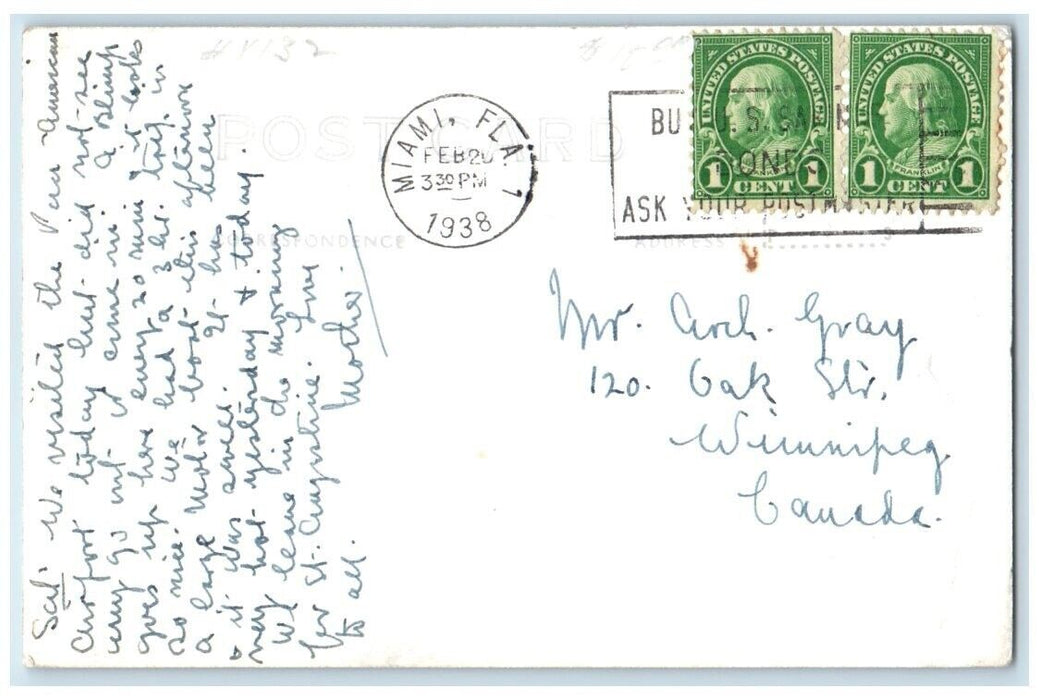 Sat. We visited the Pan American
airport today but did not see
any go out or come in. a Blimp
goes up here every 20 min & it looks
so nice. We had a 3 hr. trip in
a large motor boat this afternoon
& it was swell. It has been
very hot yesterday & today.
We leave in the morning
for St. Augustine. Love
to all. Mother.
POST CARD
CORRESPONDENCE
ADDRESS
MIAMI, FLA. 1
FEB 20
3 30 PM
1938
BUY U.S. SA
BONDS
ASK YOUR POSTMASTER
UNITED STATES POSTAGE
FRANKLIN
1 CENT 1
UNITED STATES POSTAGE
FRANKLIN
1 CENT 1
Mr. Arch. Gray
120. Oak Str.
Winnipeg
Canada.